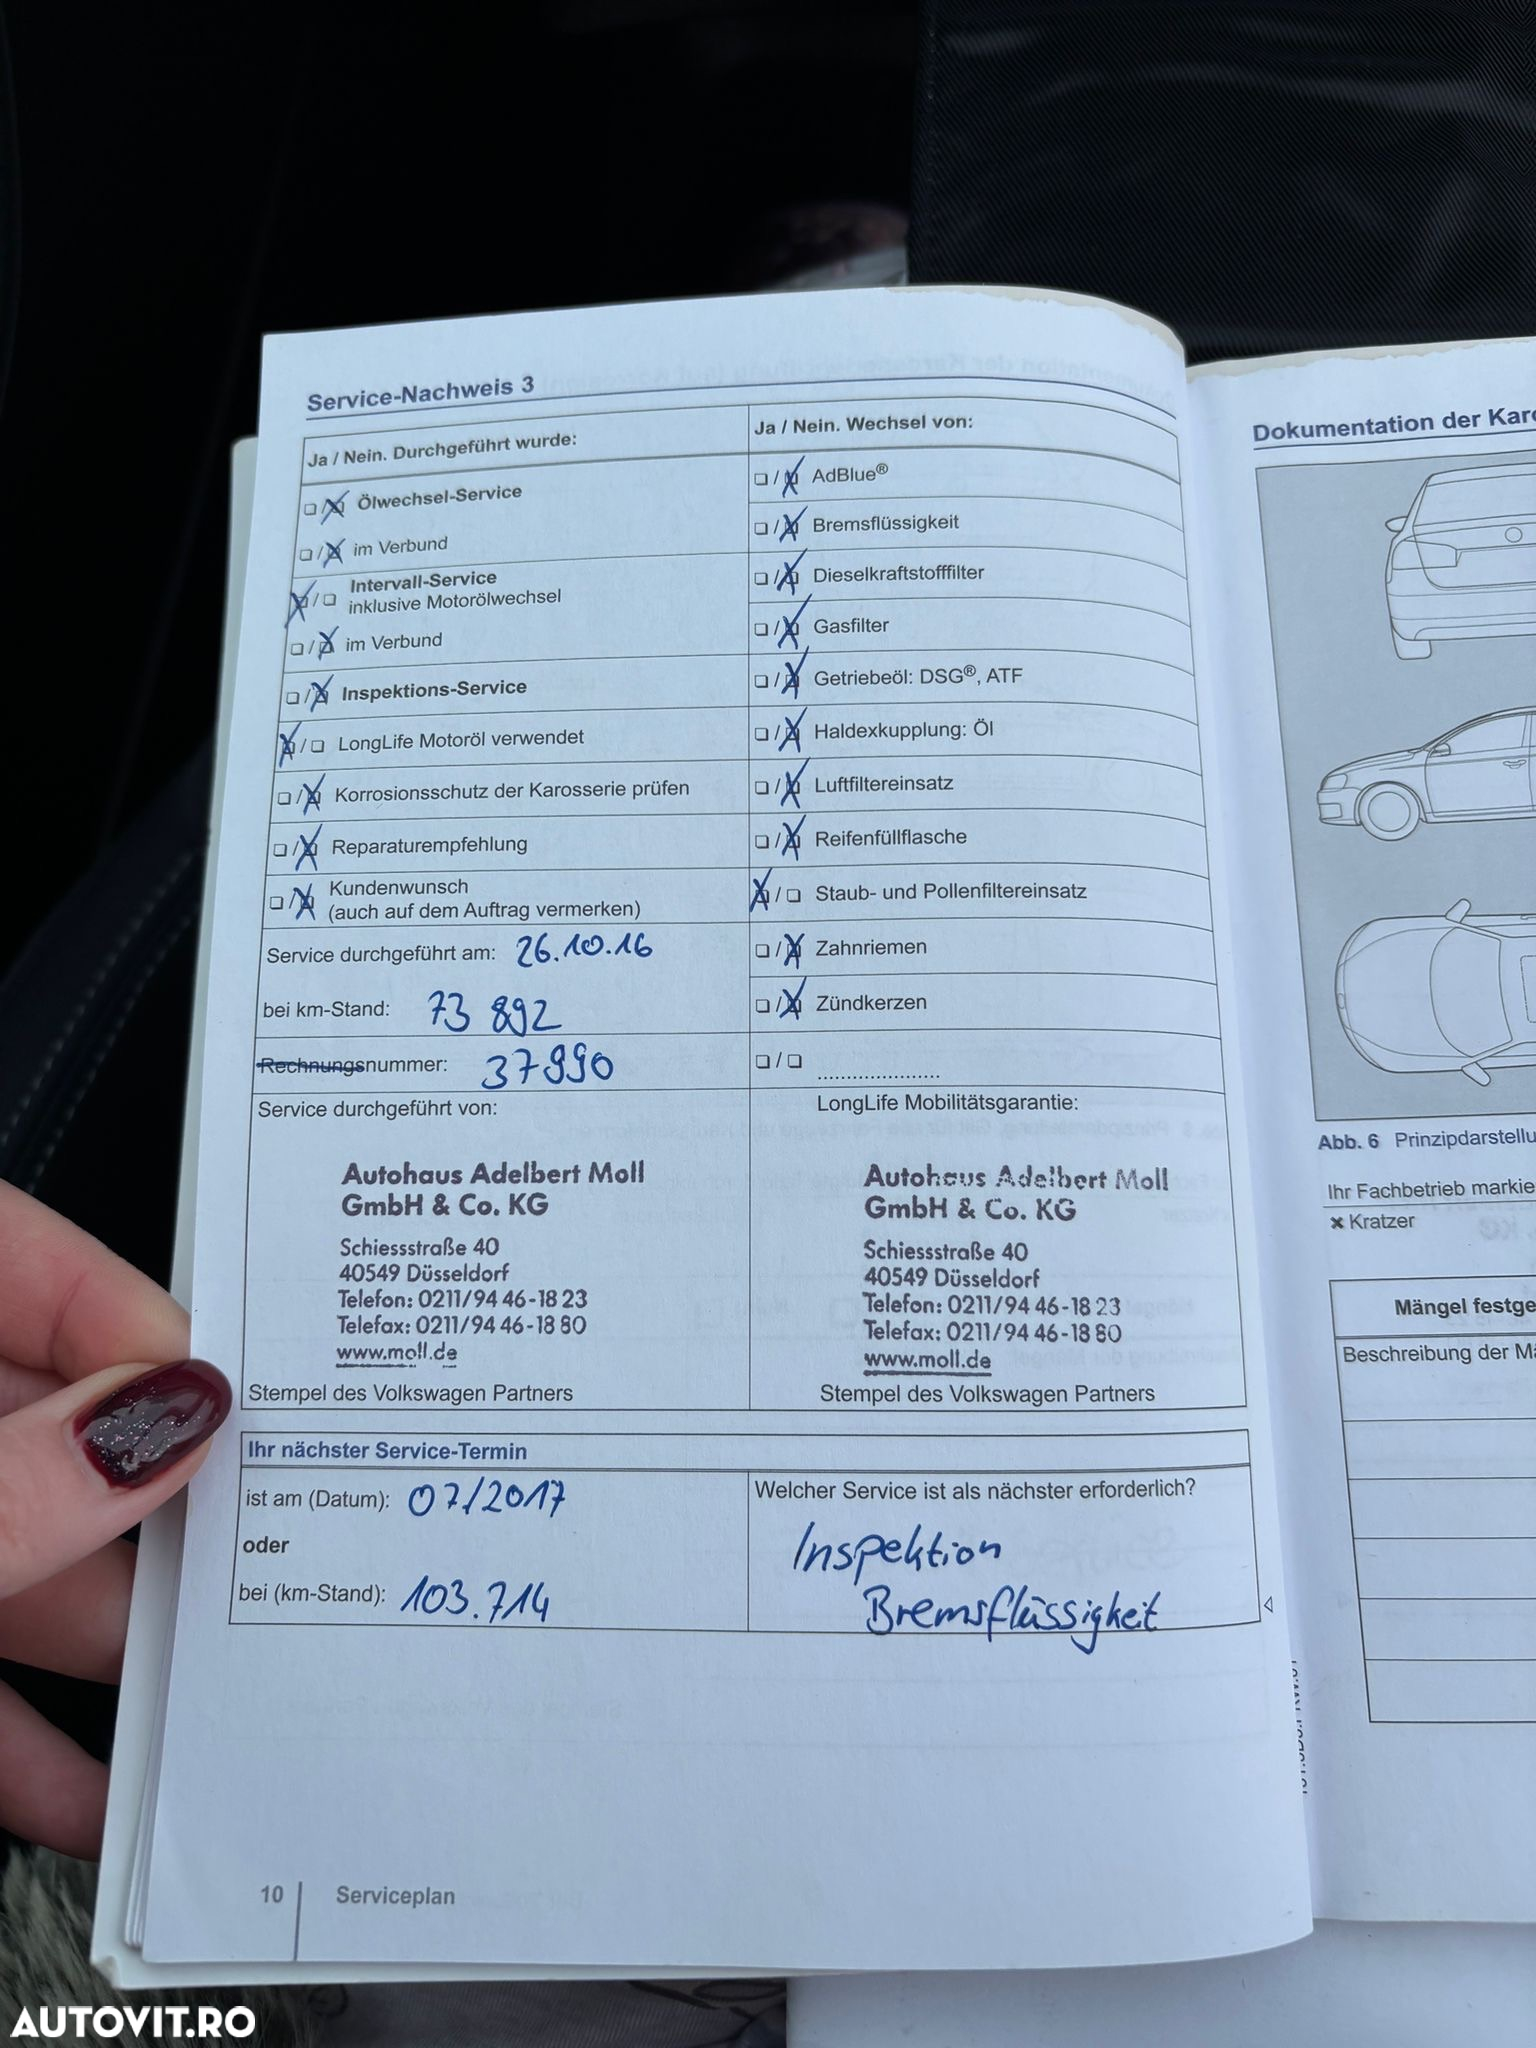 Service-Nachweis 3
Ja / Nein. Durchgeführt wurde:
Ölwechsel-Service
im Verbund
Intervall-Service
inklusive Motorölwechsel
im Verbund
Inspektions-Service
LongLife Motoröl verwendet
Korrosionsschutz der Karosserie prüfen
Reparaturempfehlung
Kundenwunsch
(auch auf dem Auftrag vermerken)
Service durchgeführt am: 26.10.16
bei km-Stand: 73 892
Rechnungsnummer: 37990
Service durchgeführt von:
Autohaus Adelbert Moll
GmbH & Co. KG
Schiessstraße 40
40549 Düsseldorf
Telefon: 0211/94 46-18 23
Telefax: 0211/94 46-18 80
www.moll.de
Stempel des Volkswagen Partners
Ja / Nein. Wechsel von:
AdBlue®
Bremsflüssigkeit
Dieselkraftstofffilter
Gasfilter
Getriebeöl: DSG®, ATF
Haldexkupplung: Öl
Luftfiltereinsatz
Reifenfüllflasche
Staub- und Pollenfiltereinsatz
Zahnriemen
Zündkerzen
....................
LongLife Mobilitätsgarantie:
Autohaus Adelbert Moll
GmbH & Co. KG
Schiessstraße 40
40549 Düsseldorf
Telefon: 0211/94 46-18 23
Telefax: 0211/94 46-18 80
www.moll.de
Stempel des Volkswagen Partners
Ihr nächster Service-Termin
ist am (Datum): 07/2017
oder
bei (km-Stand): 103.714
Welcher Service ist als nächster erforderlich?
Inspektion
Bremsflüssigkeit
10 Serviceplan
Dokumentation der
Abb. 6
Ihr Fachbetrieb
Kratzer
Mängel
Beschreibung der
AUTOVIT.RO